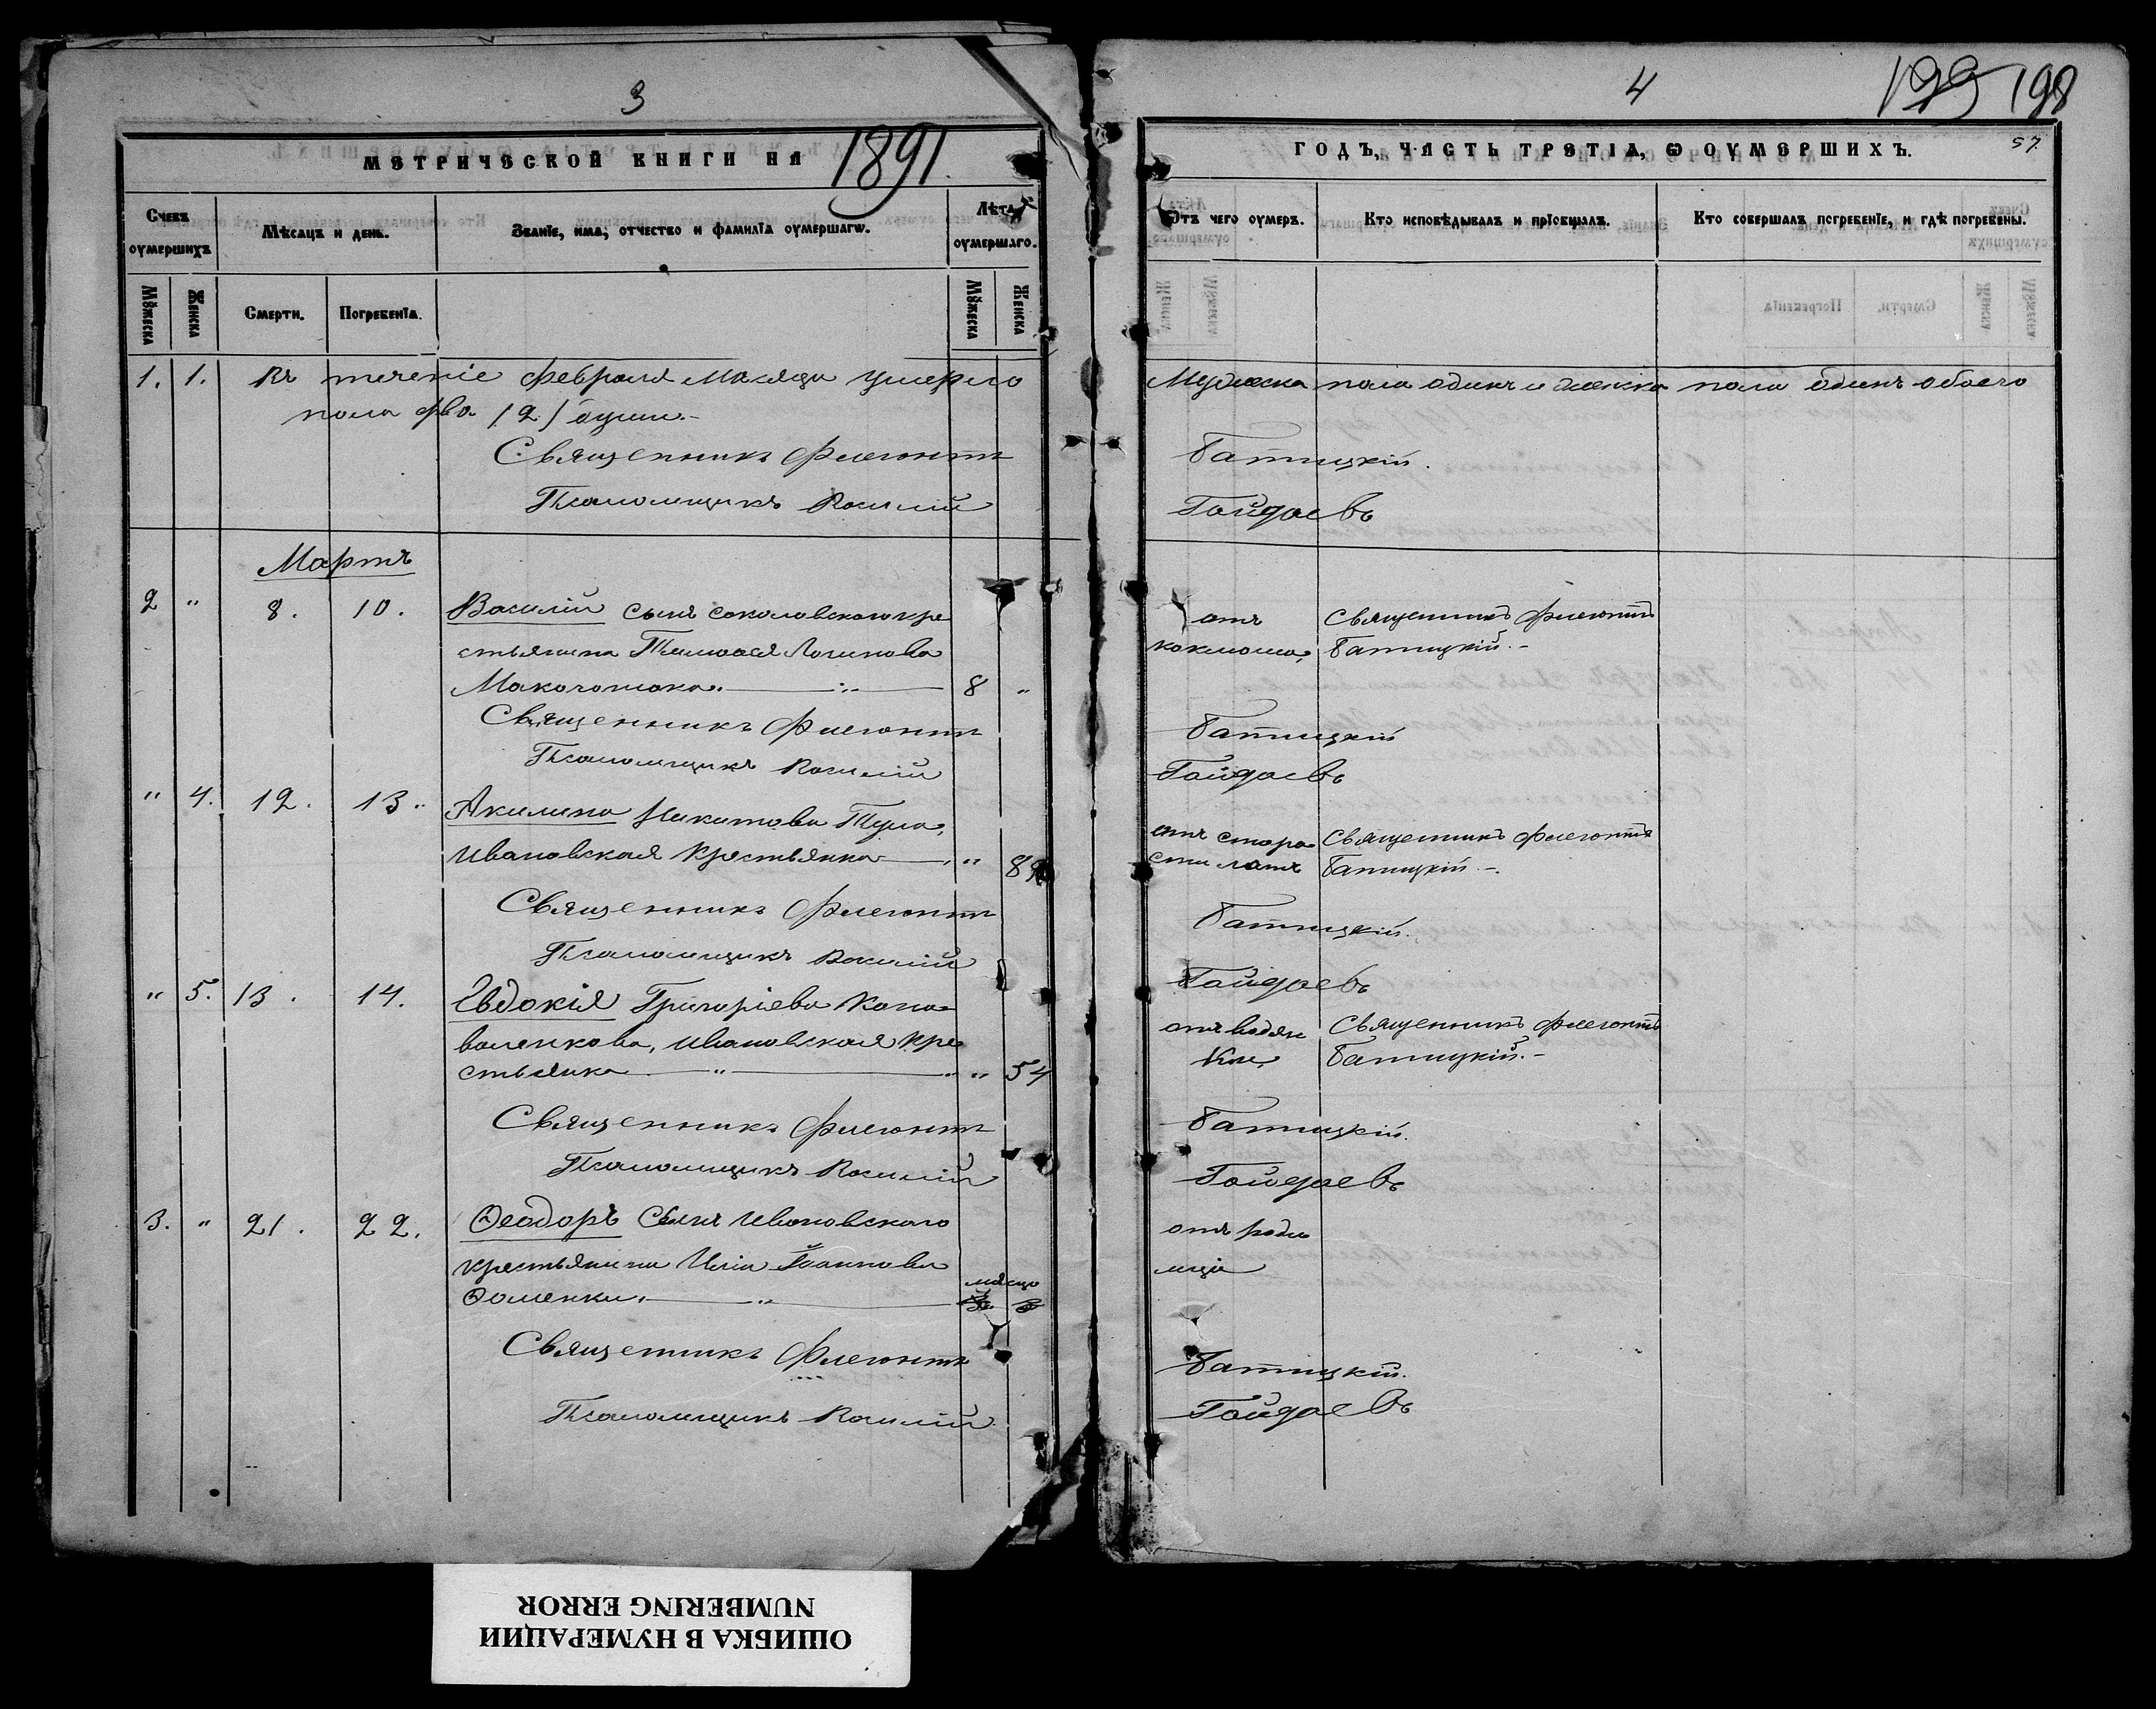 3
МЕТРИЧЕСКОЙ КНИГИ НА 1891
Счетъ оумершихъ
Мѣсяцъ и день.
Званїе, имя, отчество и фамилїа оумершагѡ.
Лѣта оумершаго.
Мꙋжеска
Женска
Смерти.
Погребенїа.
Мꙋжеска
Женска
1. 1. Въ теченіе Февраля месяца умерло
пола два (2) души.
Священникъ Флегонтъ
Псаломщикъ Василій
Мартъ
2 " 8. 10. Василій сынъ соколовскаго кре
стьянина Логинова
8 "
Священникъ Флегонтъ
Псаломщикъ Василій
" 4. 12. 13. Акилина Никитова
Ивановская крестьянка "
Священникъ Флегонтъ
Псаломщикъ Василій
" 5. 13. 14. Евдокія Григоріева Коно
валенкова, Ивановская кре
стьянка " " 54
Священникъ Флегонтъ
Псаломщикъ Василій
3. " 21. 22. Ѳеодоръ сынъ Ивановскаго
крестьянина Иліи Іоаннова
Ѳоменки. "
Священникъ Флегонтъ
Псаломщикъ Василій
4
195 198
57.
ГОДЪ, ЧАСТЬ ТРЕТІА, Ѡ ОУМЕРШИХЪ.
Отъ чего оумеръ.
Кто исповѣдывалъ и прїобщалъ.
Кто совершалъ погребенїе, и гдѣ погребены.
Мужеска пола одинъ и женска пола одинъ обоего
Батицкій.
Гайдаевъ
отъ Священникъ Флегонтъ
коклюша, Батицкій.
Батицкій
Гайдаевъ
отъ старо Священникъ Флегонтъ
сти летъ Батицкій.
Батицкій.
Гайдаевъ
отъ водян Священникъ Флегонтъ
ки, Батицкій.
Батицкій.
Гайдаевъ
отъ роди
мца
Батицкій.
Гайдаевъ
ОШИБКА В НУМЕРАЦИИ
NUMBERING ERROR